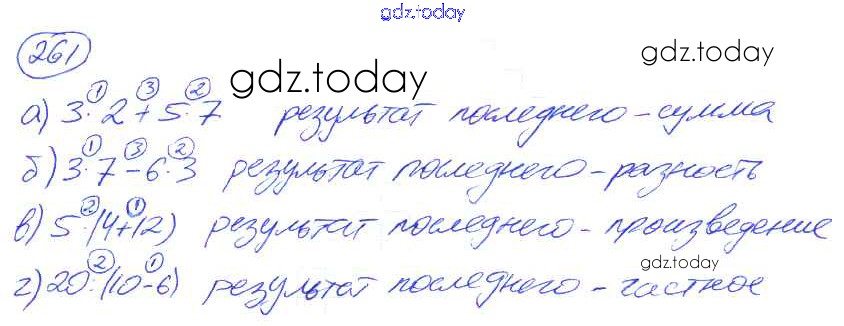 gdz.today
261
gdz.today
gdz.today
① ③ ②
а) 3·2+5·7 результат последнего - сумма
① ③ ②
б) 3·7-6·3 результат последнего - разность
② ①
в) 5·(4+12) результат последнего - произведение
gdz.today
② ①
г) 20:(10-6) результат последнего - частное